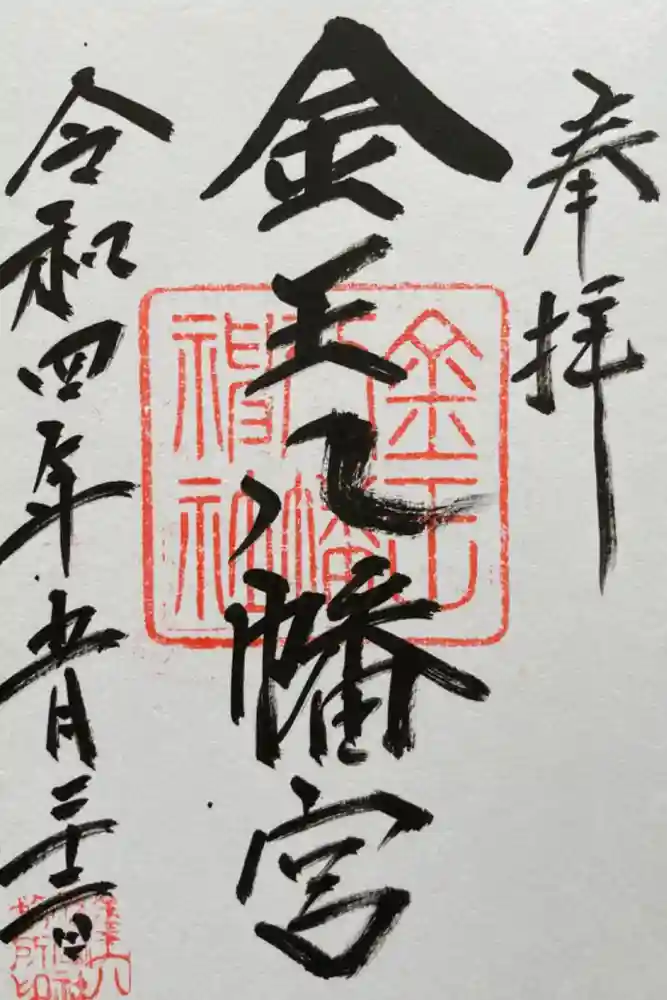 奉拝
金王八幡宮
金王
八幡
神社
令和四年五月三十一日